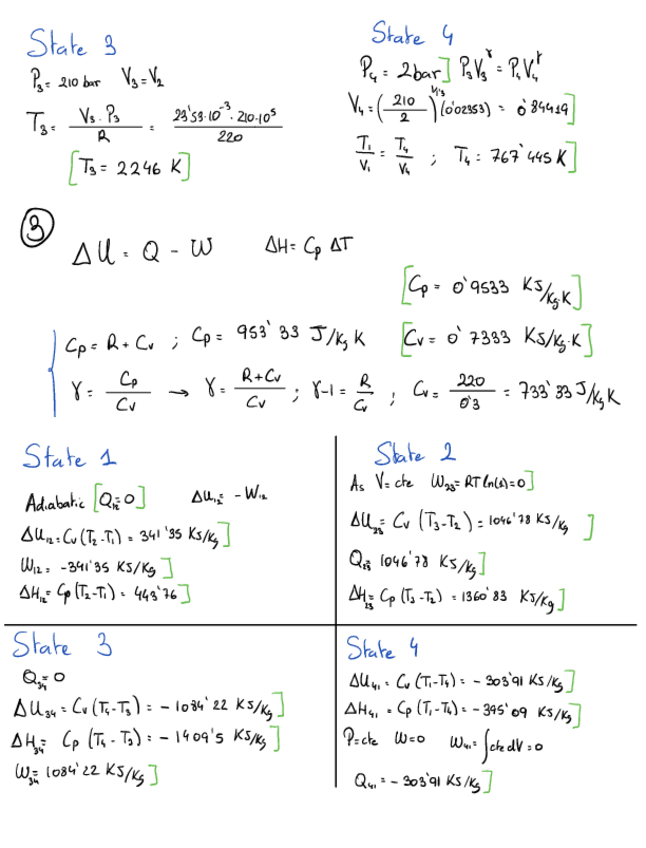 State 3
P₃ = 210 bar V₃ = V₂
T₃ = V₃ · P₃ / R = 23'53·10⁻³ · 210·10⁵ / 220
[T₃ = 2246 K]
State 4
P₄ = 2bar] P₃V₃^γ = P₄V₄^γ
V₄ = (210/2)^(1/1'3) (0'02353) = 0'84419]
T₁/V₁ = T₄/V₄ ; T₄ = 767'445 K]
③
ΔU = Q - W ΔH = Cp ΔT
[Cp = 0'9533 KJ/Kg·K]
Cp = R + Cv ; Cp = 953'33 J/Kg K [Cv = 0'7333 KJ/Kg·K]
γ = Cp/Cv → γ = R+Cv/Cv ; γ-1 = R/Cv ; Cv = 220/0'3 = 733'33 J/Kg K
State 1
Adiabatic [Q₁₂=0] ΔU₁₂ = -W₁₂
ΔU₁₂ = Cv (T₂-T₁) = 341'35 KJ/Kg]
W₁₂ = -341'35 KJ/Kg]
ΔH₁₂ = Cp (T₂-T₁) = 443'76]
State 2
As V=cte W₂₃ = RT ln(1) = 0]
ΔU₂₃ = Cv (T₃-T₂) = 1046'78 KJ/Kg ]
Q₂₃ = 1046'78 KJ/Kg]
ΔH₂₃ = Cp (T₃-T₂) = 1360'83 KJ/Kg]
State 3
Q₃₄ = 0
ΔU₃₄ = Cv (T₄-T₃) = -1084'22 KJ/Kg]
ΔH₃₄ = Cp (T₄-T₃) = -1409'5 KJ/Kg]
W₃₄ = 1084'22 KJ/Kg]
State 4
ΔU₄₁ = Cv (T₁-T₄) = -303'91 KJ/Kg]
ΔH₄₁ = Cp (T₁-T₄) = -395'09 KJ/Kg]
P=cte W=0 W₄₁ = ∫cte dV = 0
Q₄₁ = -303'91 KJ/Kg]